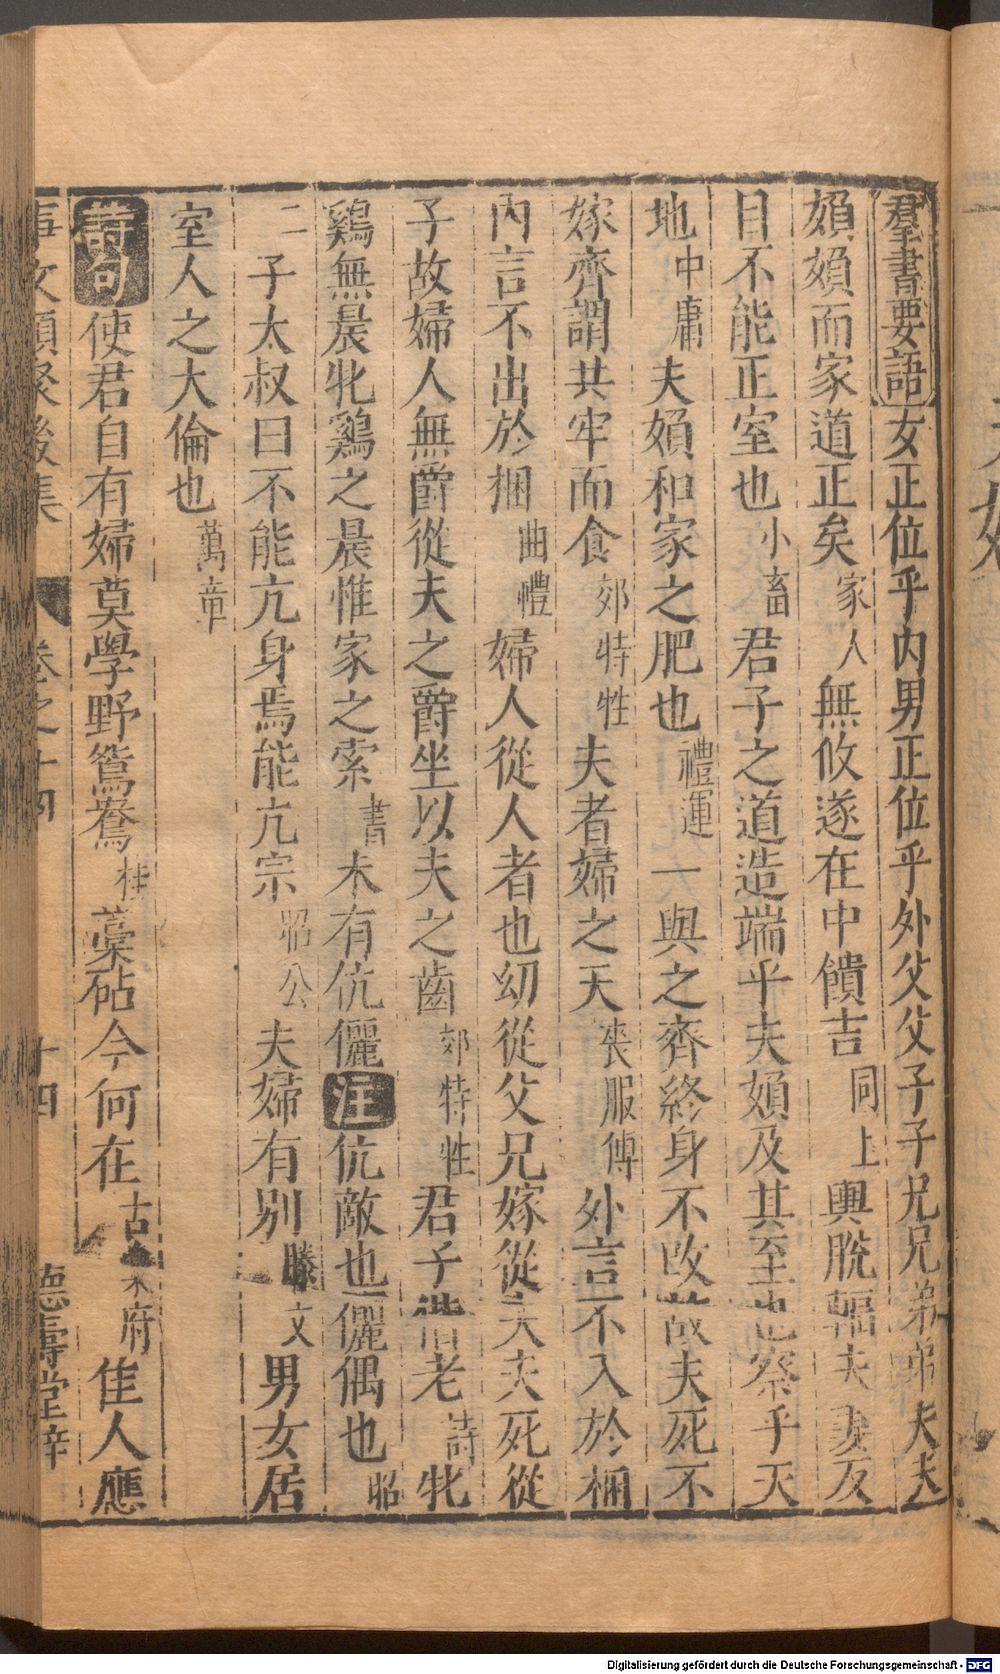 羣書要語女正位乎内男正位乎外父父子子兄兄弟弟夫夫
媍媍而家道正矣家人無攸遂在中饋吉同上輿脫輻夫妻反
目不能正室也小畜君子之道造端乎夫媍及其至也察乎天
地中庸夫媍和家之肥也禮運一與之齊終身不改故夫死不
嫁齊謂共牢而食郊特牲夫者婦之天喪服傳外言不入於梱
内言不出於捆曲禮婦人從人者也幼從父兄嫁從夫夫死從
子故婦人無爵從夫之爵坐以夫之齒郊特牲君子偕老詩牝
鷄無晨牝鷄之晨惟家之索書未有伉儷注伉敵也儷偶也昭
二子太叔曰不能亢身焉能亢宗昭公夫婦有别滕文男女居
室人之大倫也萬章
詩句使君自有婦莫學野鴛鴦杜藁砧今何在古樂府佳人應
事文類聚後集 卷之十四 十四 德壽堂梓
Digitalisierung gefördert durch die Deutsche Forschungsgemeinschaft - DFG